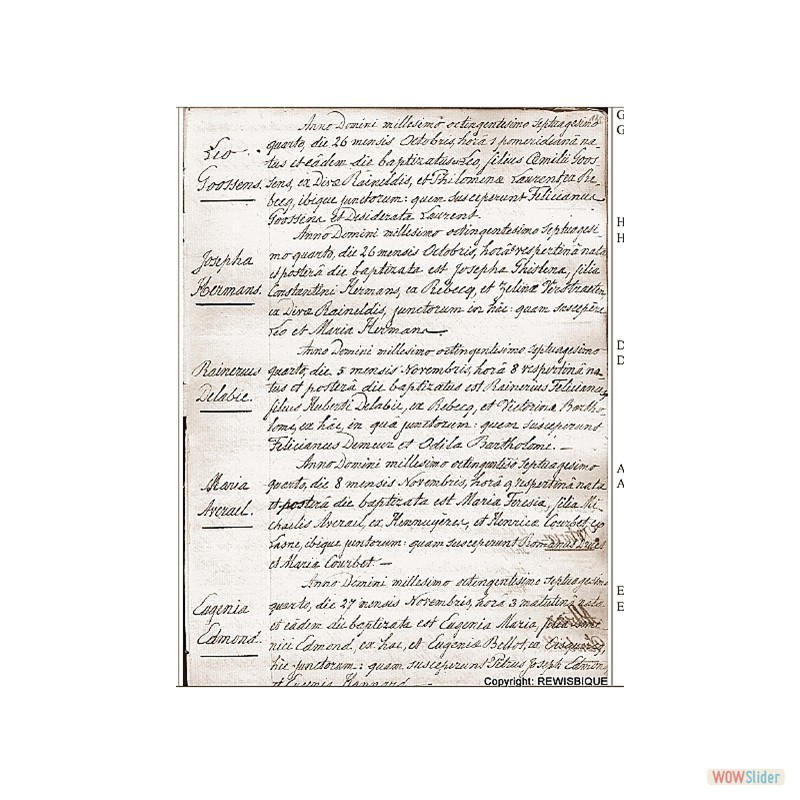 Anno Domini millesimo octingentesimo septuagesimo
quarto, die 26 mensis Octobris, horâ 5 pomeridianâ na-
Leo
tus et eâdem die baptizatus Leo, filius Camilii Goos-
Goossens.
sens, ex Divæ Raineldis, et Philominæ Laurent ex Re-
becq, ibique junctorum: quem susceperunt Felicianus
Goossens et Desiderata Laurent.
Anno Domini millesimo octingentesimo septuagesi-
mo quarto, die 26 mensis Octobris, horâ vespertinâ nata
Josepha
et posterâ die baptizata est Josepha Ghislena, filia
Hermans.
Constantini Hermans, ex Rebecq, et Zelinæ Verstraeten,
ex Divæ Raineldis, junctorum in hâc: quam suscepêre
Leo et Maria Hermans.
Anno Domini millesimo octingentesimo septuagesimo
Rainerius
quarto, die 5 mensis Novembris, horâ 8 vespertinâ na-
tus et posterâ die baptizatus est Rainerius Felicianus,
Delabie.
filius Huberti Delabie, ex Rebecq, et Victorinæ Bartho-
lomé, ex hâc, in quâ junctorum: quem susceperunt
Felicianus Demeur et Odila Bartholomé. —
Anno Domini millesimo octingentiso septuagesimo
Maria
quarto, die 8 mensis Novembris, horâ 9 vespertinâ nata
Averael.
et posterâ die baptizata est Maria Teresia, filia Mi-
chaelis Averael, ex Hennuyères, et Henricæ Courbet ex
Lasne, ibique juntorum: quam susceperunt Romanus
et Maria Courbet. —
Anno Domini millesimo octingentesimo septuagesimo
Eugenia
quarto, die 27 mensis Novembris, hora 3 matutinâ nata
et eâdem die baptizata est Eugenia Maria,
Edmond.
nici Edmond, ex hac, et Eugeniæ Bellot, ex
hic junctorum: quam susceperunt Petrus Joseph Edmond
et Eugenia
Copyright: REWISBIQUE
G
G
H
H
D
D
A
A
E
E
WOWSlider